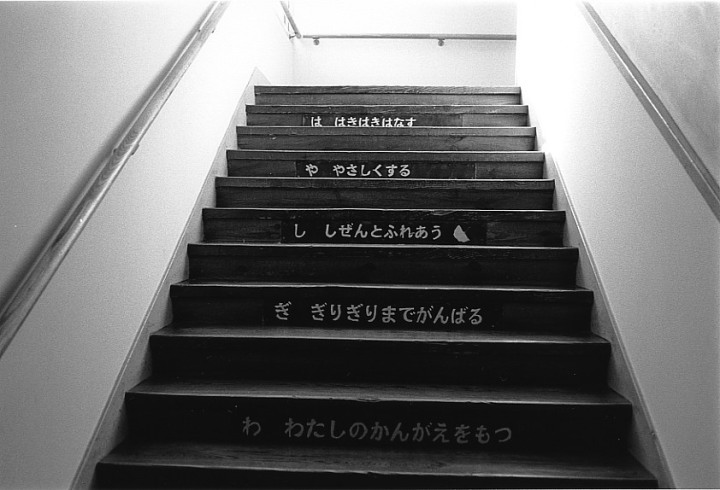 は　はきはきはなす
や　やさしくする
し　しぜんとふれあう
ぎ　ぎりぎりまでがんばる
わ　わたしのかんがえをもつ